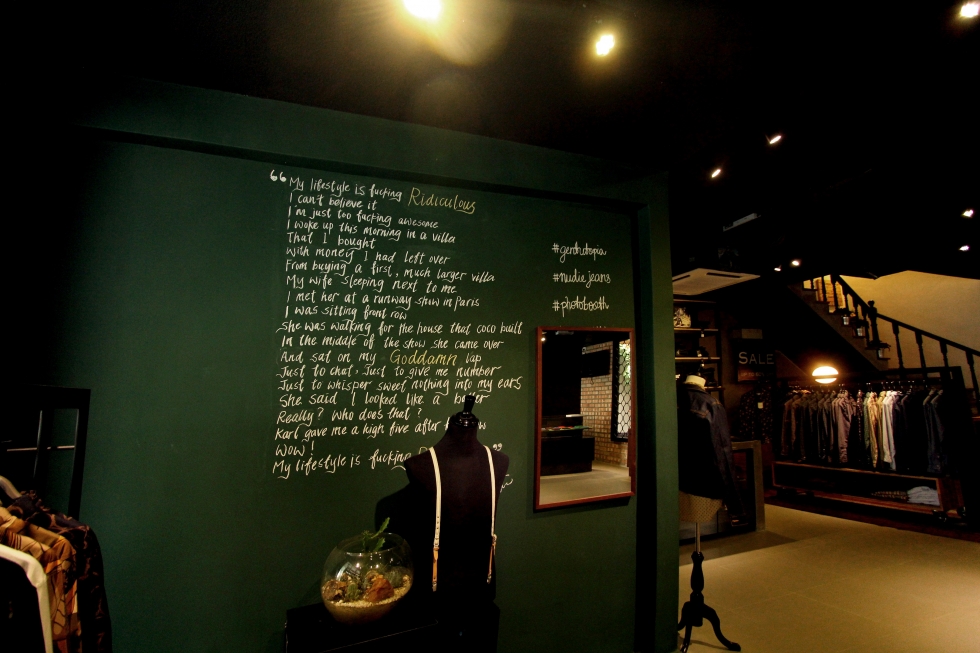 “ My lifestyle is fucking Ridiculous
I can't believe it
I'm just too fucking awesome
I woke up this morning in a villa
That I bought
With money I had left over
From buying a first, much larger villa
My wife sleeping next to me
I met her at a runway show in Paris
I was sitting front row
She was walking for the house that coco built
In the middle of the show she came over
And sat on my Goddamn lap
Just to chat, Just to give me number
Just to whisper sweet nothing into my ears
She said I looked like a
Really? Who does that?
Karl gave me a high five after
Wow!
My lifestyle is fucking ”
#nudiejeans
#photobooth
SALE